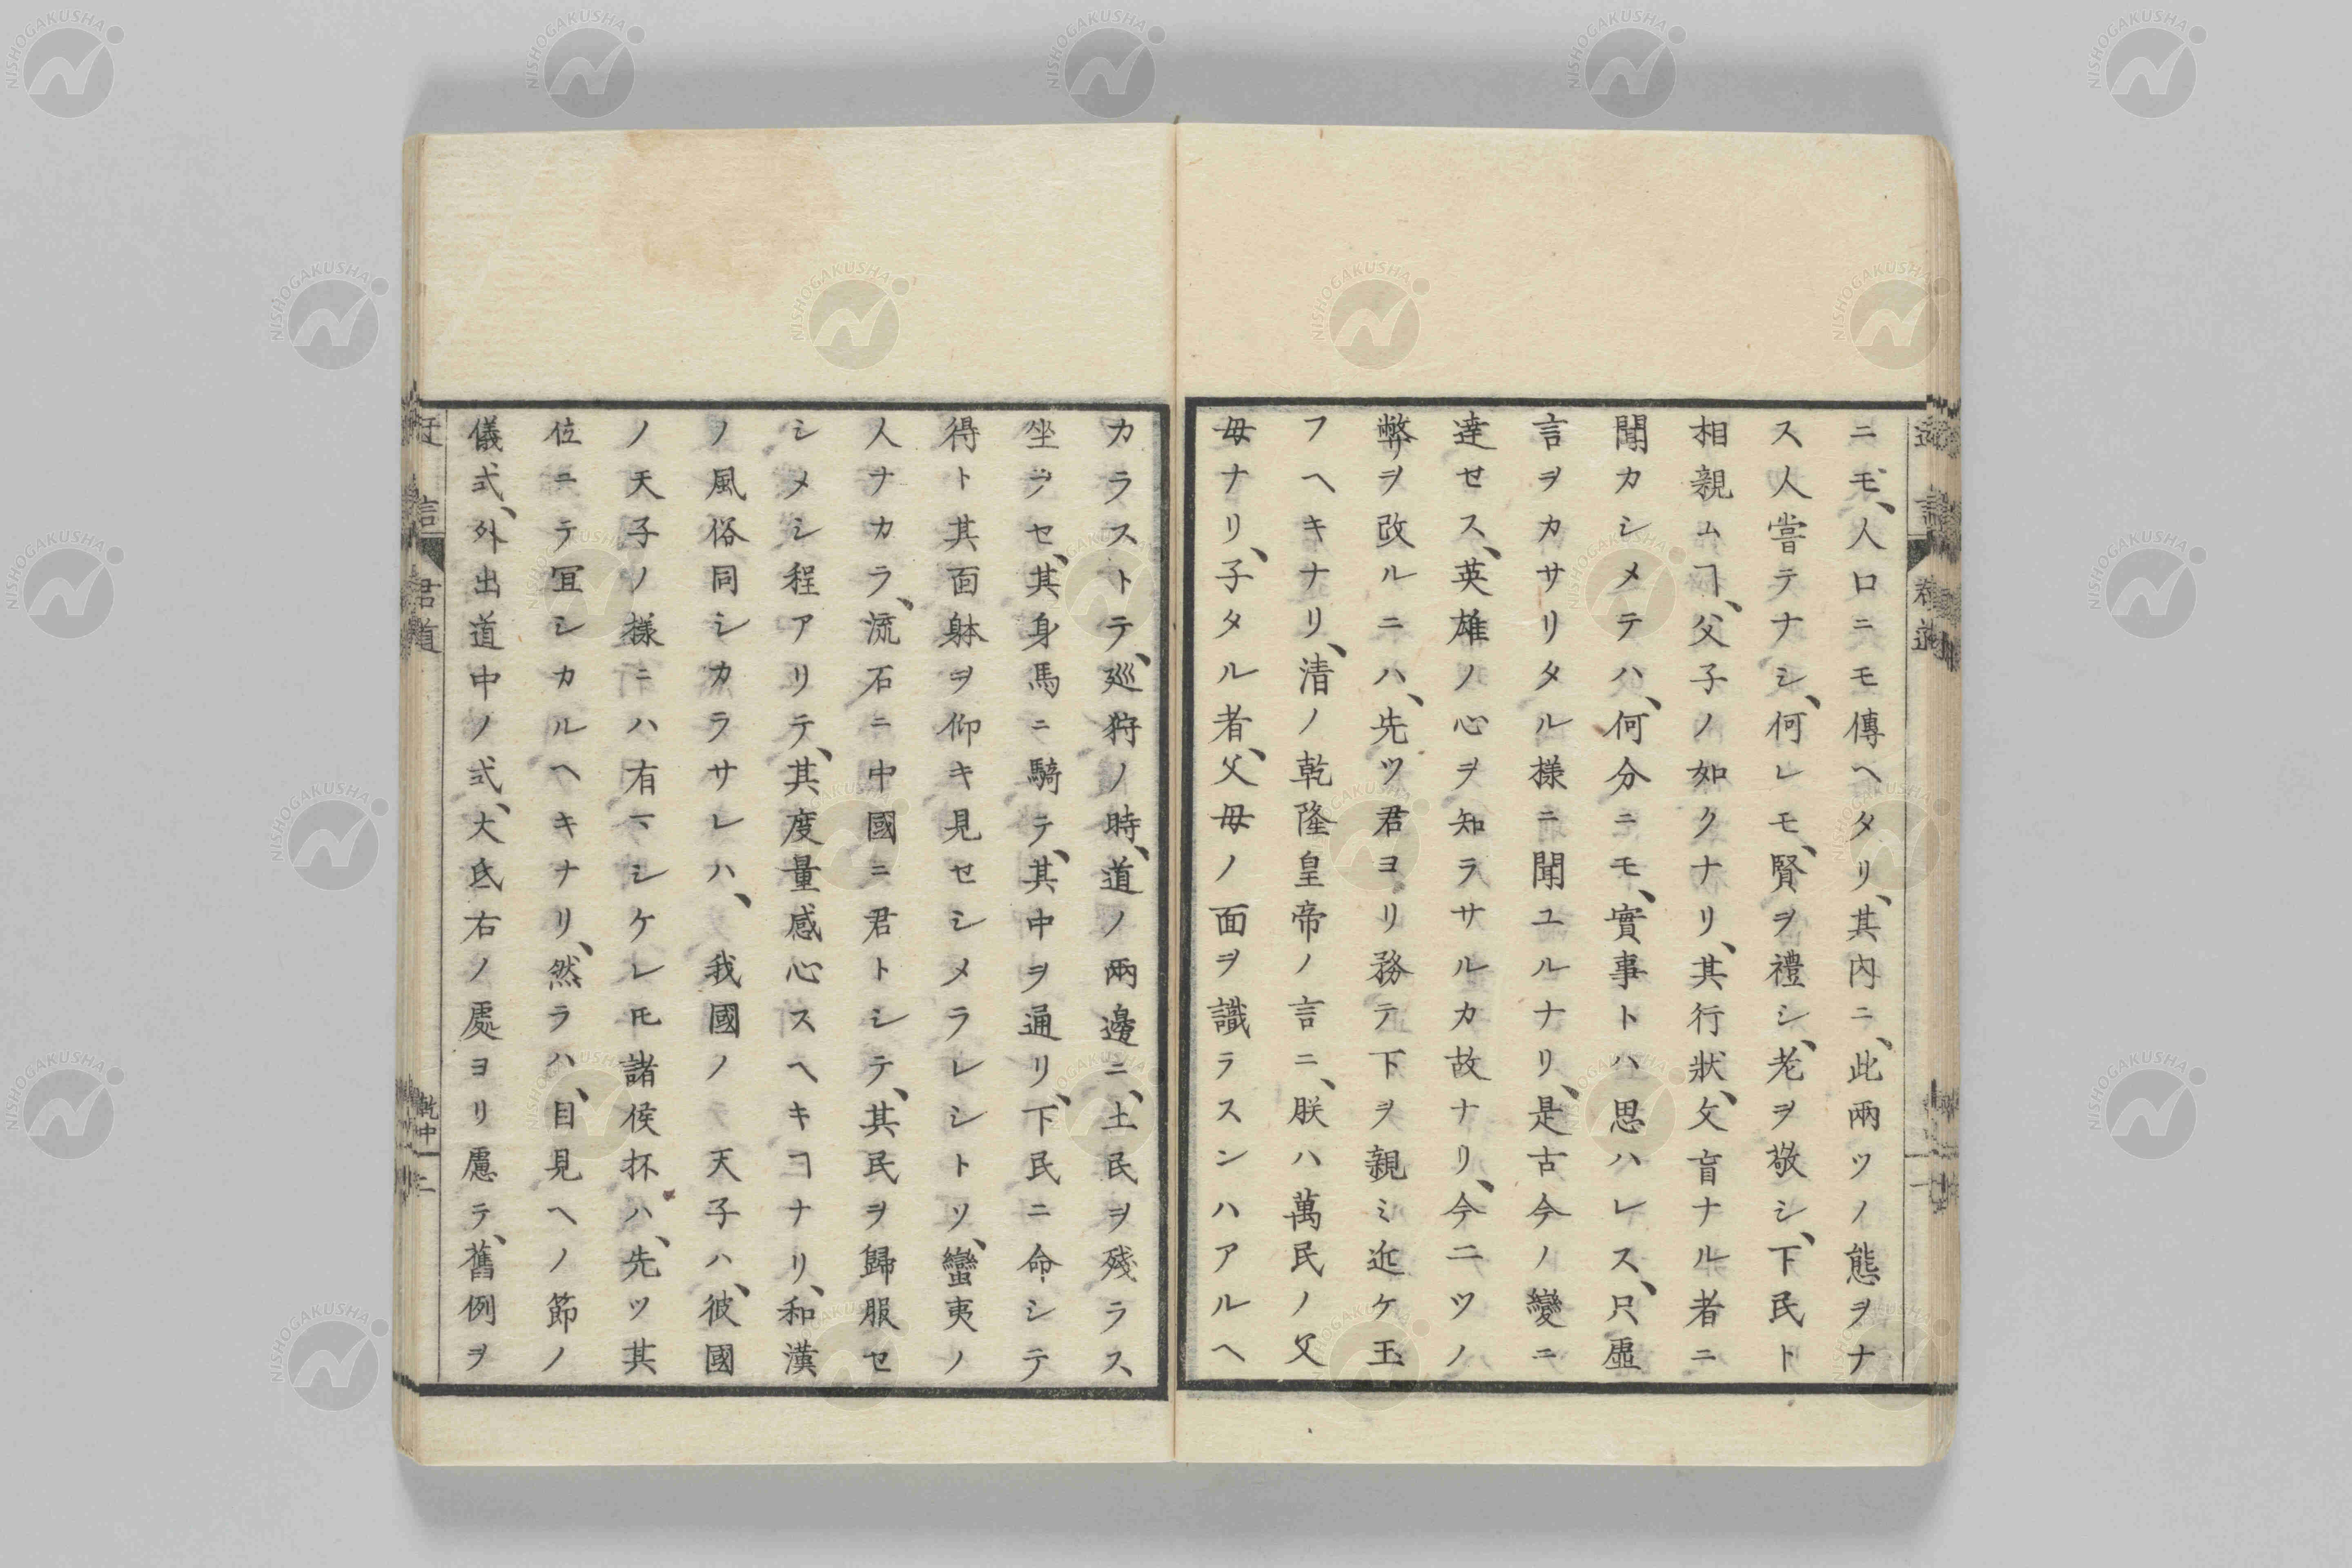 ニモ、人口ニモ傳ヘタリ、其内ニ、此兩ツノ態ヲナ
ス人嘗テナシ、何レモ、賢ヲ禮シ、老ヲ敬シ、下民ト
相親ムヿ、父子ノ如クナリ、其行狀、文盲ナル者ニ
聞カシメテハ、何分ニモ、實事トハ思ハレス、只虛
言ヲカサリタル様ニ聞ユルナリ、是古今ノ變ニ
達セス、英雄ノ心ヲ知ラサルカ故ナリ、今二ツノ
弊リヲ改ルニハ、先ツ君ヨリ務テ下ヲ親ミ近ケ玉
フヘキナリ、清ノ乾隆皇帝ノ言ニ、朕ハ萬民ノ父
母ナリ、子タル者、父母ノ面ヲ識ラスンハアルヘ
カラストテ、巡狩ノ時、道ノ兩邊ニ、土民ヲ殘ラス
坐ヲセ、其身馬ニ騎テ、其中ヲ通リ、下民ニ命シテ
得ト其面躰ヲ仰キ見セシメラレシトソ、蠻夷ノ
人ナカラ、流石ニ中國ニ君トシテ、其民ヲ歸服セ
シメシ程アリテ、其度量感心スヘキヿナリ、和漢
ノ風俗同シカラサレハ、我國ノ天子ハ、彼國
ノ天子ノ様ニハ有マシケレ𪜈諸侯抔ハ、先ツ其
位ニテ冝シカルヘキナリ、然ラハ、目見ヘノ節ノ
儀式、外出道中ノ式、大氐右ノ處ヨリ慮テ、舊例ヲ
迂言 君道 乾中 二
NISHOGAKUSHA